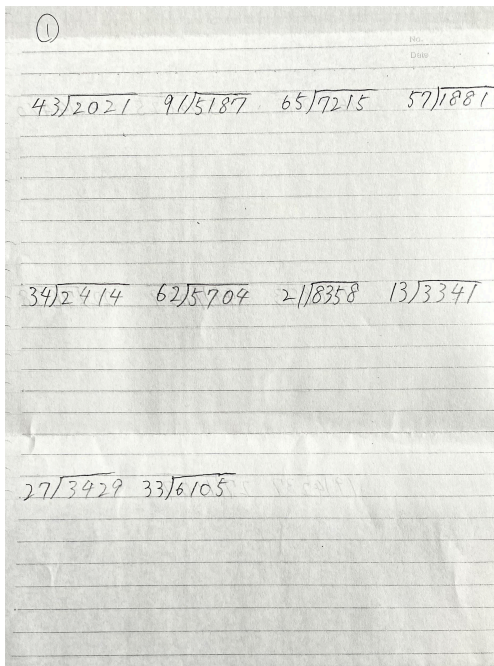 ①
No.
Date
43)2021 91)5187 65)7215 57)1881
34)2414 62)5704 21)8358 13)3341
27)3429 33)6105